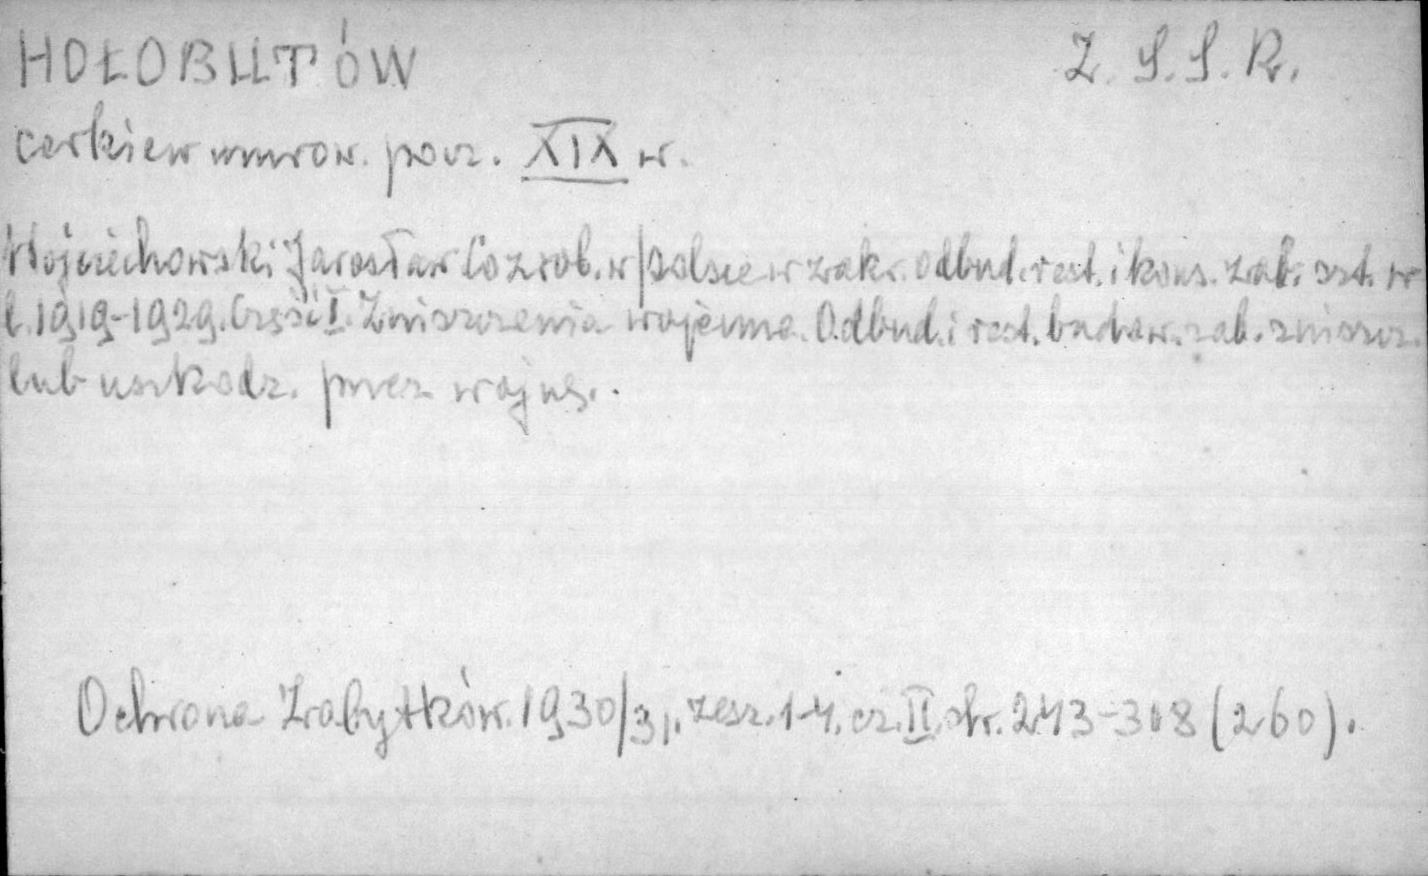 HOŁOBUTÓW Z. S. S. R.
cerkiew murow. pocz. XIX w.
Wojciechowski Jarosław Co zrob. w Polsce w zakr. odbud. rest. i kons. zab. szt. w
l. 1919-1929. Część I. Zniszczenia wojenne. Odbud. i rest. budow. zab. zniszcz.
lub uszkodz. przez wojnę.
Ochrona Zabytków. 1930/31. zesz. 1-4. cz. II. str. 243-308 (260).